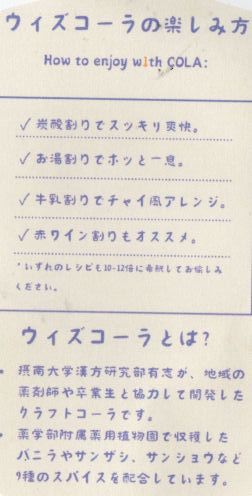 ウィズコーラの楽しみ方
How to enjoy with COLA:
✓ 炭酸割りでスッキリ爽快。
✓ お湯割りでホッと一息。
✓ 牛乳割りでチャイ風アレンジ。
✓ 赤ワイン割りもオススメ。
*いずれのレシピも10-12倍に希釈してお愉しみ
ください。
ウィズコーラとは?
• 摂南大学漢方研究部有志が、地域の
薬剤師や卒業生と協力して開発した
クラフトコーラです。
• 薬学部附属薬用植物園で収穫した
バニラやサンザシ、サンショウなど
9種のスパイスを配合しています。